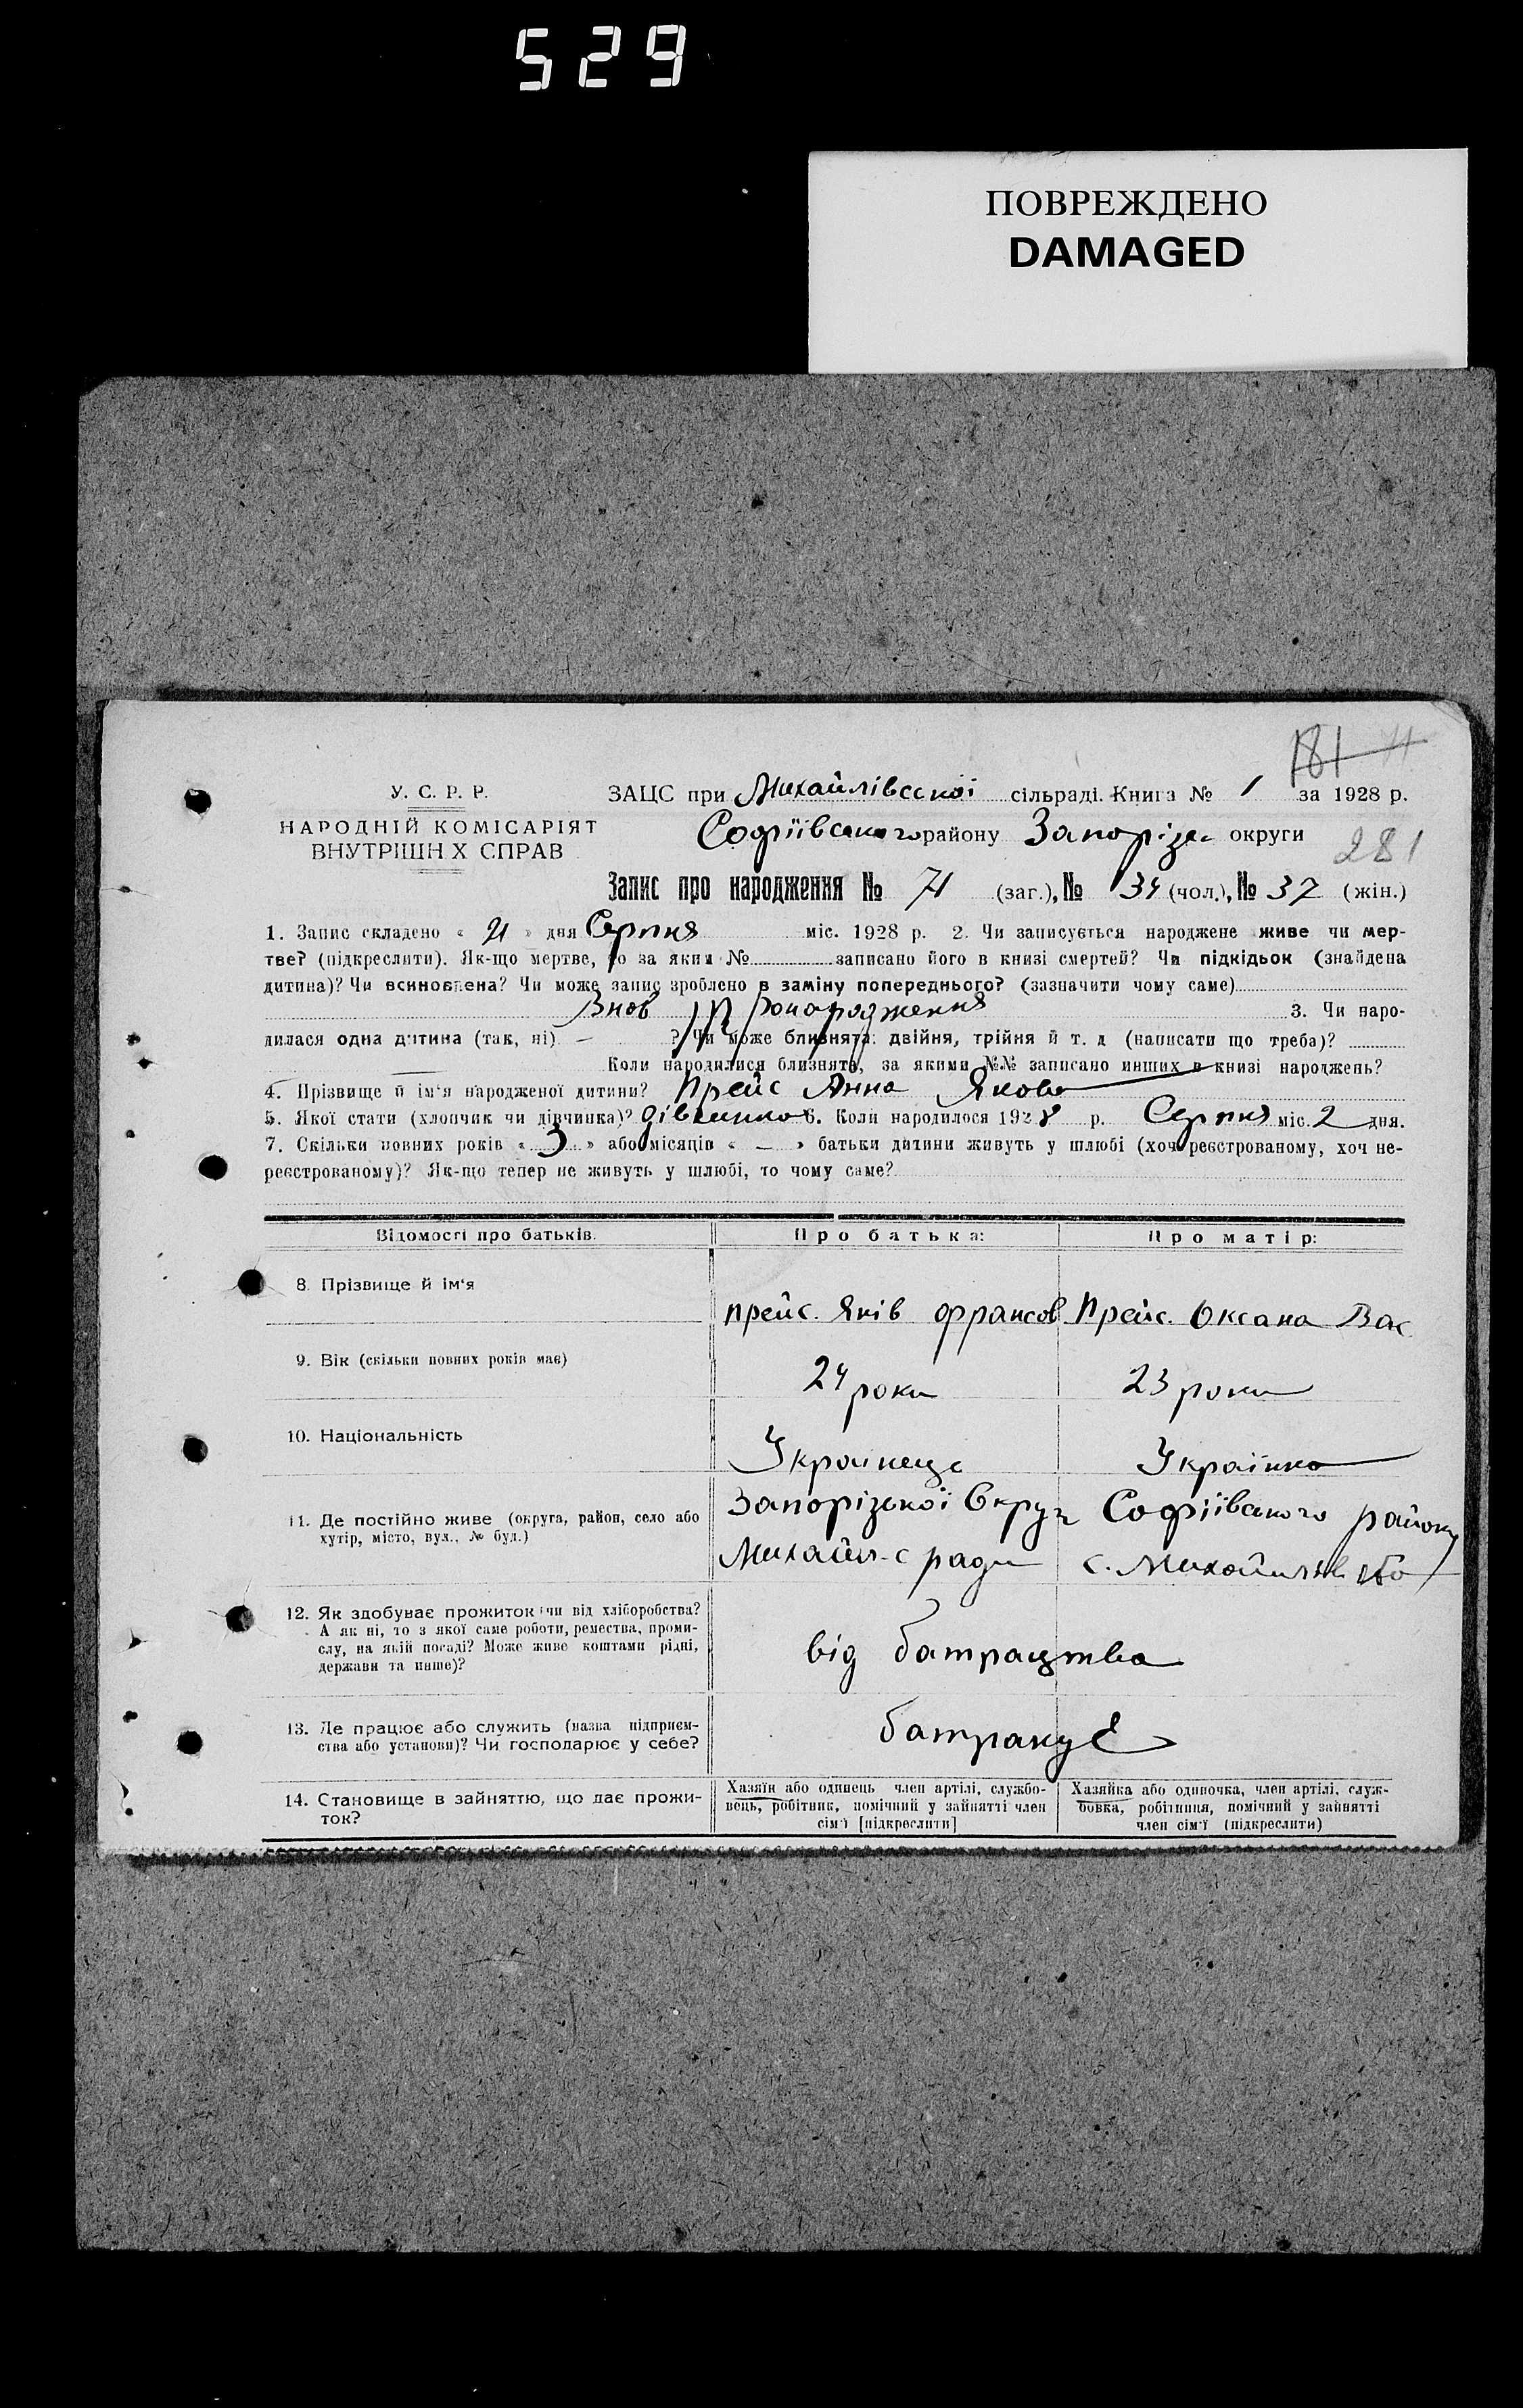 529
ПОВРЕЖДЕНО
DAMAGED
181
У. С. Р. Р.
НАРОДНІЙ КОМІСАРІЯТ
ВНУТРІШН Х СПРАВ
ЗАЦС при Михайлівській сільраді. Книга № 1 за 1928 р.
Софіївського району Запорізь округи
281
Запис про народження № 71 (заг.), № 34 (чол.), № 37 (жін.)
1. Запис складено « 21 » дня Серпня міс. 1928 р. 2. Чи записується народжене живе чи мер-
тве? (підкреслити). Як-що мертве, то за яким № записано його в книзі смертей? Чи підкідьок (знайдена
дитина)? Чи всиновлена? Чи може запис зроблено в заміну попереднього? (зазначити чому саме)
Внов 3. Чи наро-
дилася одна дитина (так, ні) – ? Чи може близнята: двійня, трійня й т. д (написати що треба)?
Коли народилися близнята, за якими №№ записано инших в книзі народжень?
4. Прізвище й ім'я народженої дитини? Прейс Анна Яковл
5. Якої стати (хлопчик чи дівчинка)? дівчинка 6. Коли народилося 1928 р. Серпня міс. 2 дня.
7. Скільки повних років « 3 » або місяців « – » батьки дитини живуть у шлюбі (хоч реєстрованому, хоч не-
реєстрованому)? Як-що тепер не живуть у шлюбі, то чому саме?
Відомості про батьків. Про батька: Про матір:
8. Прізвище й ім'я
прейс. Яків Франсов Прейс. Оксана Вас
9. Вік (скільки повних років має)
24 роки 23 роки
10. Національність
Українець Українка
11. Де постійно живе (округа, район, село або
хутір, місто, вул., № буд.)
Запорізької Округ Софіївського району
Михайл-с ради с. Михайлівка
12. Як здобуває прожиток (чи від хліборобства?
А як ні, то з якої саме роботи, ремества, проми-
слу, на якій посаді? Може живе коштами рідні,
держави та инше)?
від батрацтва
13. Де працює або служить (назва підприєм-
ства або установи)? Чи господарює у себе?
батракує
14. Становище в зайняттю, що дає прожи-
ток?
Хазяїн або одинець член артілі, службо-
вець, робітник, помічний у зайнятті член
сім'ї [підкреслити]
Хазяйка або одиночка, член артілі, служ-
бовка, робітниця, помічний у зайнятті
член сім'ї (підкреслити)